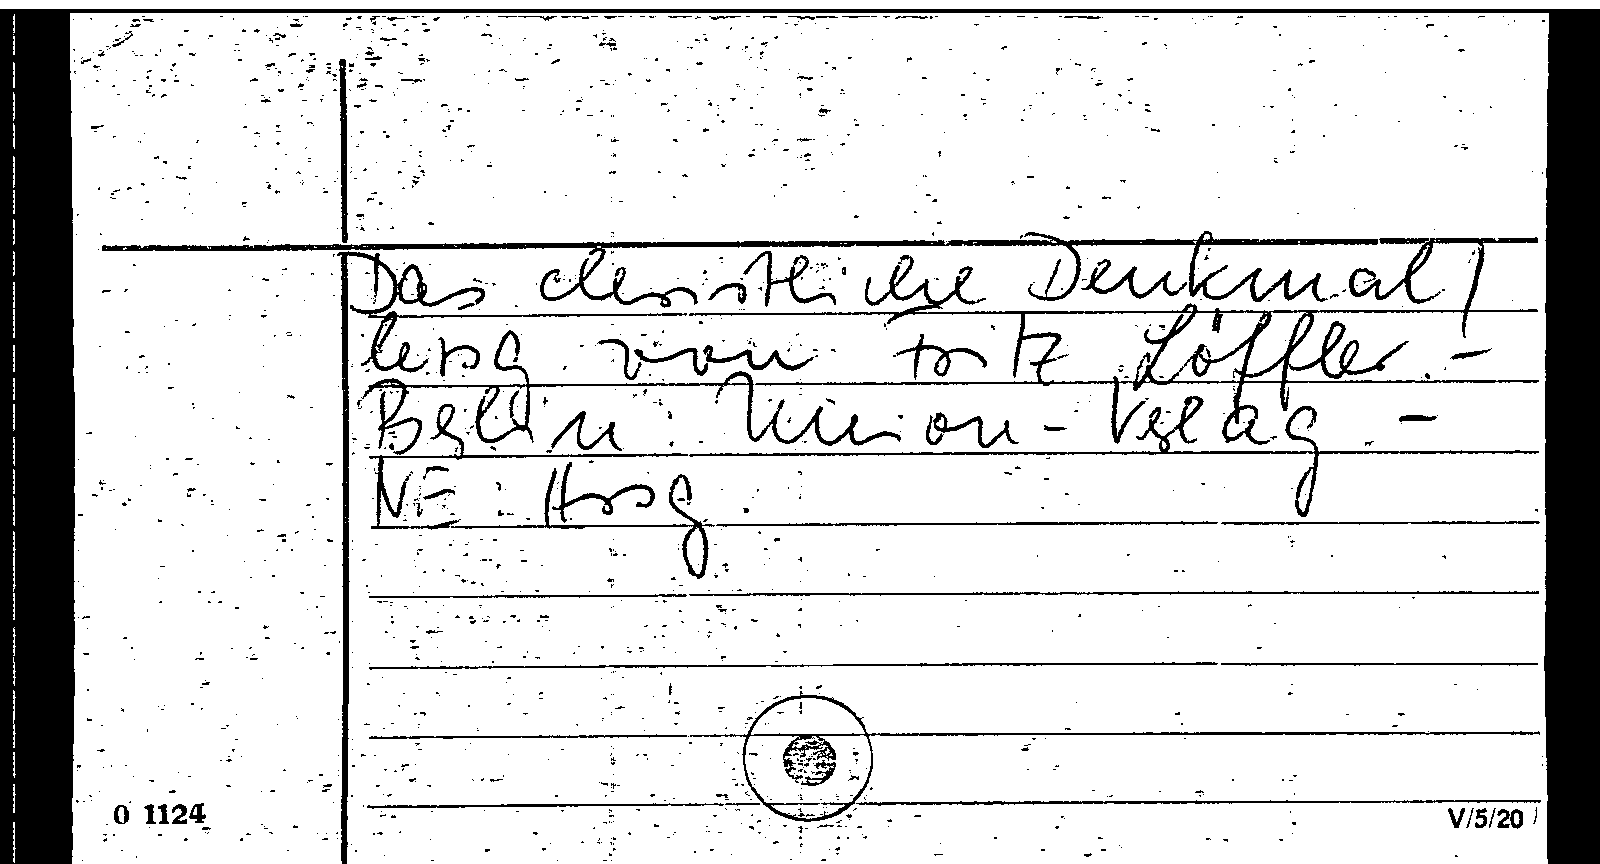 Das christliche Denkmal /
hrsg. von Fritz Löffler. -
Berlin: Union-Verlag. -
NE: Hrsg.
0 1124
V/5/20